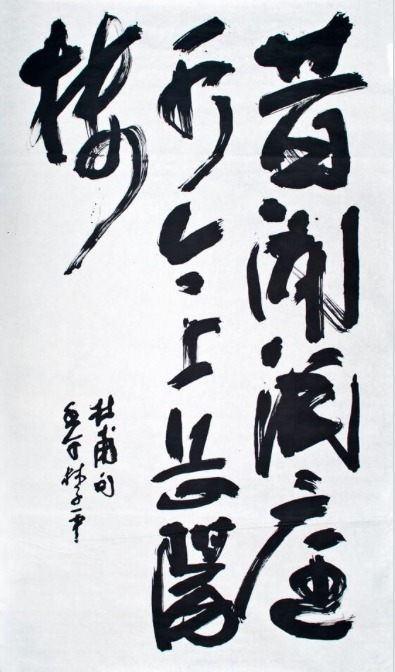 昔闻洞庭
水今上岳陽
楼
杜甫句
林子